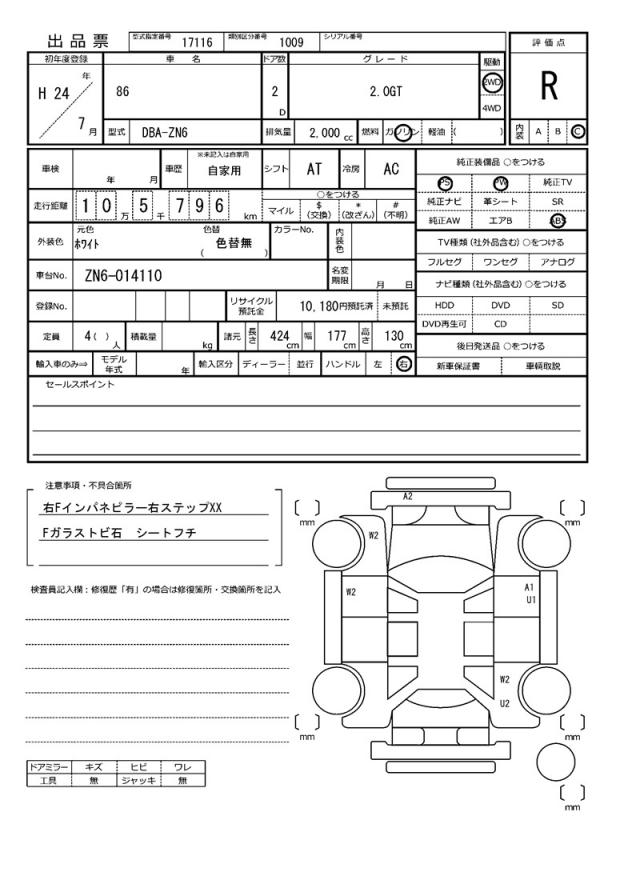 出品票 型式指定番号 17116 類別区分番号 1009 シリアル番号
初年度登録 車名 ドア数 グレード 駆動 評価点
H 24 年 7 月 86 2 D 2.0GT 2WD 4WD R
型式 DBA-ZN6 排気量 2,000 cc 燃料 ガソリン 軽油 ( ) 内装 A B C
車検 年 月 車歴 ※未記入は自家用 自家用 シフト AT 冷房 AC 純正装備品 ○をつける
PS PW 純正TV
走行距離 1 0 万 5 千 7 9 6 km ○をつける マイル $ (交換) * (改ざん) # (不明) 純正ナビ 革シート SR
純正AW エアB ABS
外装色 元色 ホワイト 色替 色替無 ( ) カラーNo. 内装色 TV種類(社外品含む)○をつける
フルセグ ワンセグ アナログ
車台No. ZN6-014110 名変期限 月 日 ナビ種類(社外品含む)○をつける
登録No. リサイクル預託金 10,180円預託済 未預託 HDD DVD SD
DVD再生可 CD
定員 4( ) 人 積載量 kg 諸元 長さ 424 cm 幅 177 cm 高さ 130 cm 後日発送品 ○をつける
輸入車のみ⇒ モデル年式 年 輸入区分 ディーラー 並行 ハンドル 左 右 新車保証書 車輌取説
セールスポイント
注意事項・不具合箇所
右Fインパネピラー右ステップXX
Fガラストビ石 シートフチ
検査員記入欄：修復歴「有」の場合は修復箇所・交換箇所を記入
A2
mm mm
W2
W2 A1
U1
W2
U2
mm mm
mm
ドアミラー キズ ヒビ ワレ
工具 無 ジャッキ 無